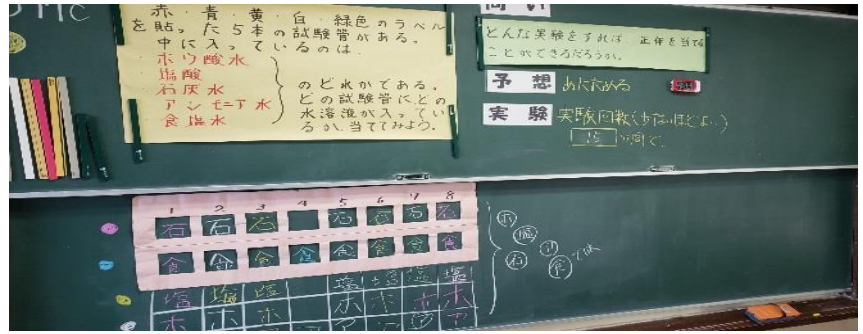 赤・青・黄・白・緑色のラベル
を貼った5本の試験管がある。
中に入っているのは
ホウ酸水
塩酸
石灰水
アンモニア水
食塩水
のどれかである。
どの試験管にどの
水溶液が入ってい
るか、当ててみよう。
どんな実験をすれば 正体を当てる
ことができるだろうか。
予想 あたためる
実験 実験回数(少ないほどよい)
15 回で
1 2 3 4 5 6 7 8
石 石 石 石 石 石 石
食 食 食 食 食 食 食 食
塩 塩 塩 塩 塩 塩 塩
ホ ホ ホ ホ ホ ホ
ホ
塩
石
食